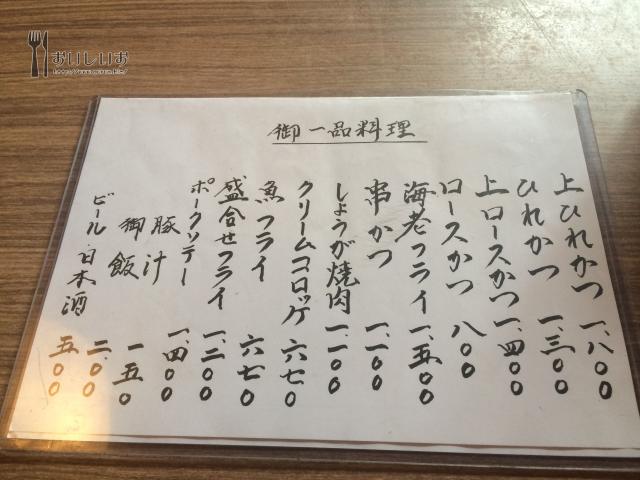 おいしいお
御一品料理
上ひれかつ 一、八〇〇
ひれかつ 一、三〇〇
上ロースかつ 一、四〇〇
ロースかつ 八〇〇
海老フライ 一、五〇〇
串かつ 一、一〇〇
しょうが焼肉 一、一〇〇
クリームコロッケ 六七〇
魚フライ 六七〇
盛合せフライ 一、二〇〇
ポークソテー 一、四〇〇
豚汁 一五〇
御飯 二、〇〇
ビール・日本酒 五〇〇